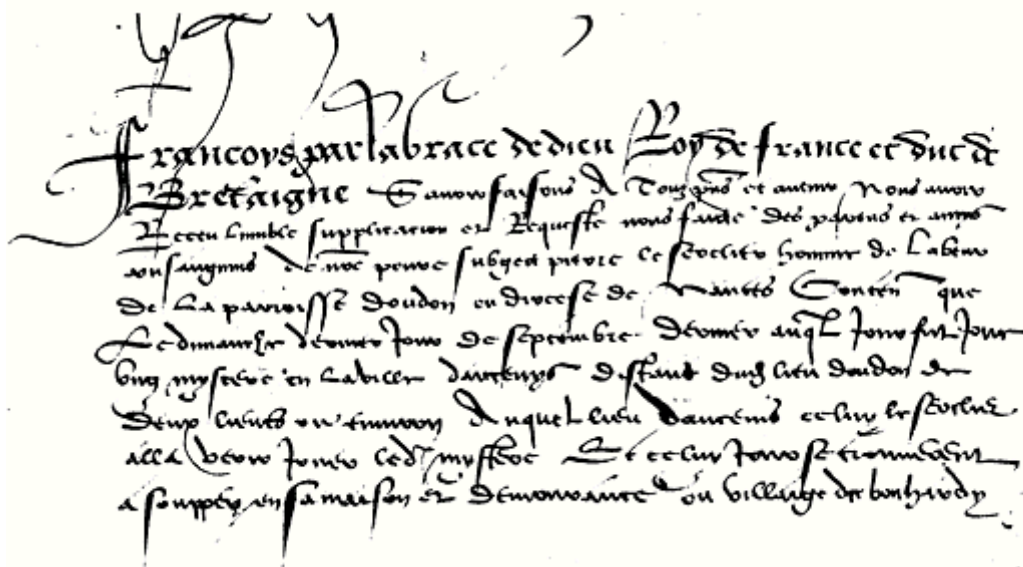 Francoys par la grace de dieu Roy de france et duc de
Bretaigne Savoir faisons A Tous p̃ns et avenir Nous avoir
Receu lumble supplicacion et Requeste nous faicte des parens et amys
consanguins de nr̃e povre subgect pierre le seoclier homme de labeur
de La parroisse doudon ou diocese de Nantes Conten̄ que
Le dimanche dernier Jour de septembre dernier auq̃l Jour fut Joue
ung mystere en La ville dancenys distant dud lieu doudon de
deux lieues ou environ Auquel Lieu dancenis celuy le seoclier
alla veoir Jouer led mystere Et celuy Jour se trouverent
a soupper en sa maison et demourance ou villaige de bonhardy